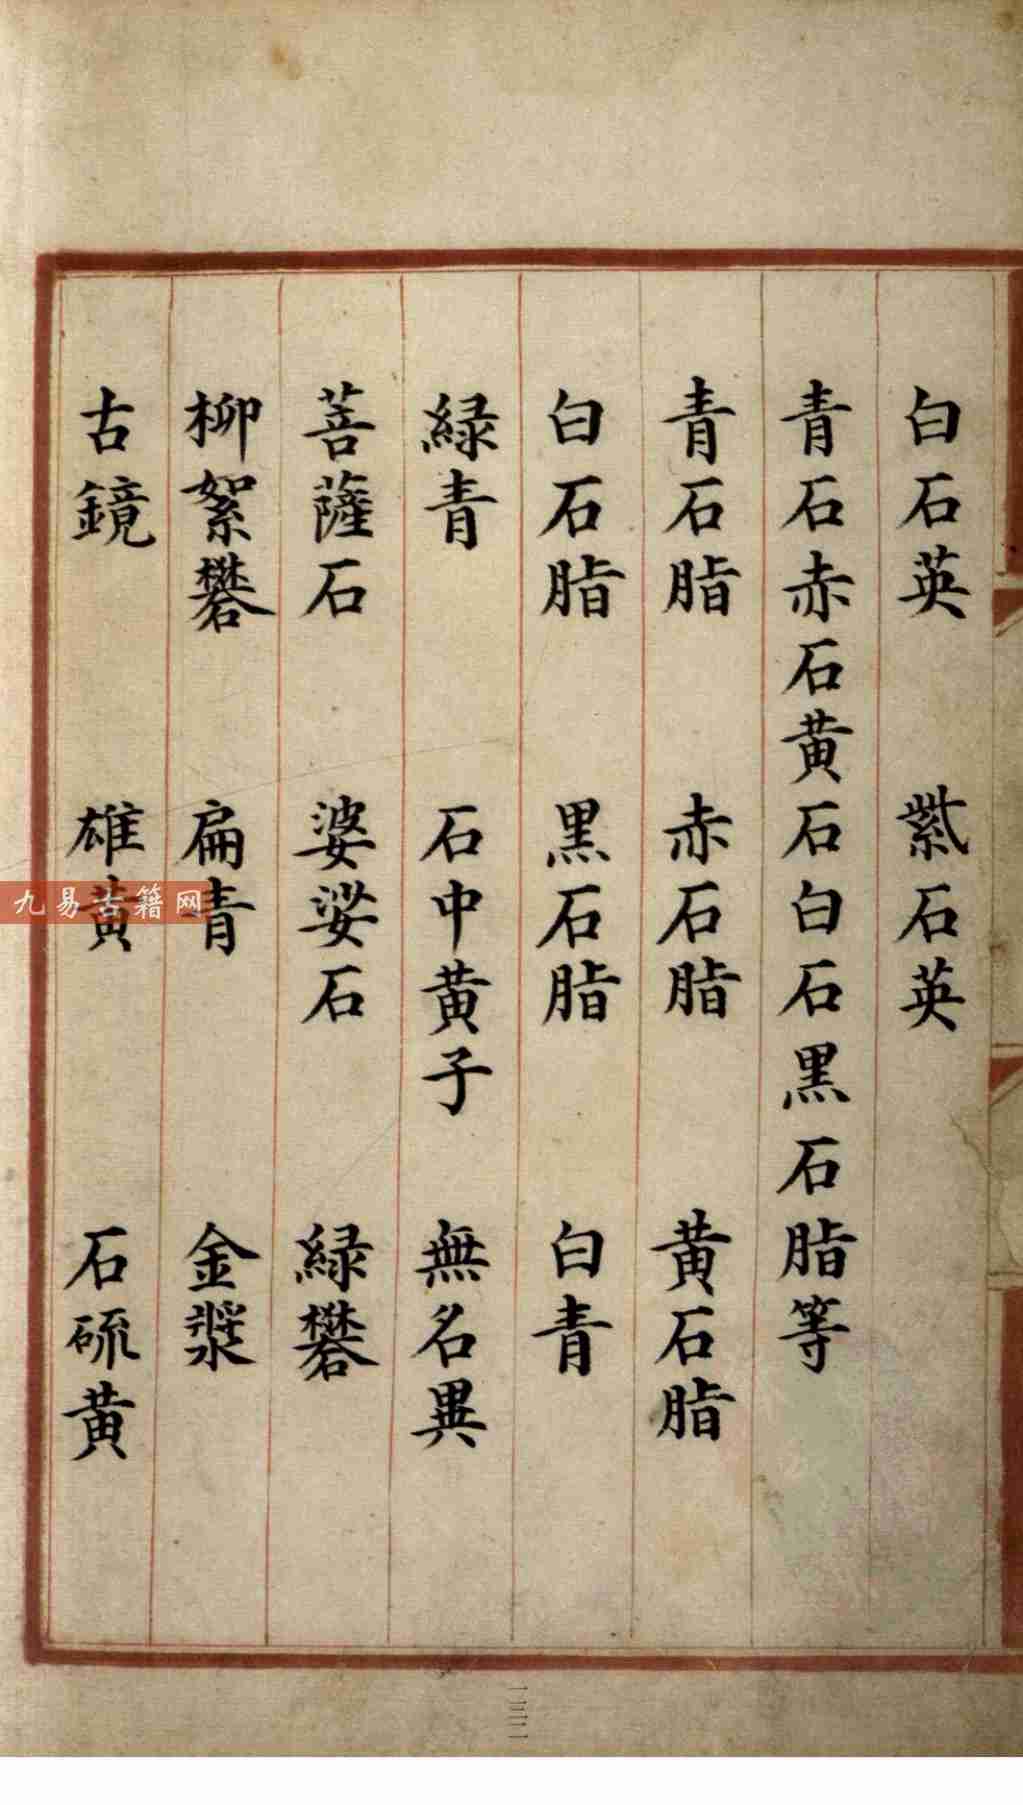 白石英 紫石英
青石赤石黄石白石黑石脂等
青石脂 赤石脂 黄石脂
白石脂 黑石脂 白青
緑青 石中黄子 無名異
菩薩石 婆娑石 緑礬
柳絮礬 扁青 金漿
古鏡 雄黄 石硫黄
九易古籍网